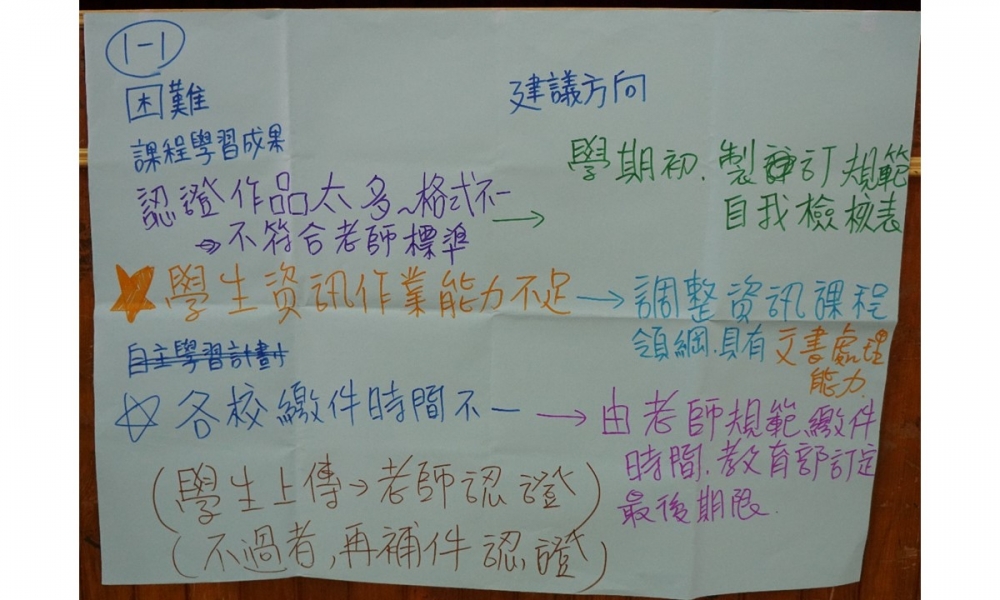 1-1
困難
建議方向
課程學習成果
認證作品太多~格式不一
→不符合老師標準
→ 學期初、製訂規範
自我檢核表
★學生資訊作業能力不足
→調整資訊課程
領綱、具有文書處理
能力
自主學習計劃
☆各校繳件時間不一
→由老師規範繳件
時間、教育部訂定
最後期限.
(學生上傳→老師認證)
(不過者,再補件認證)